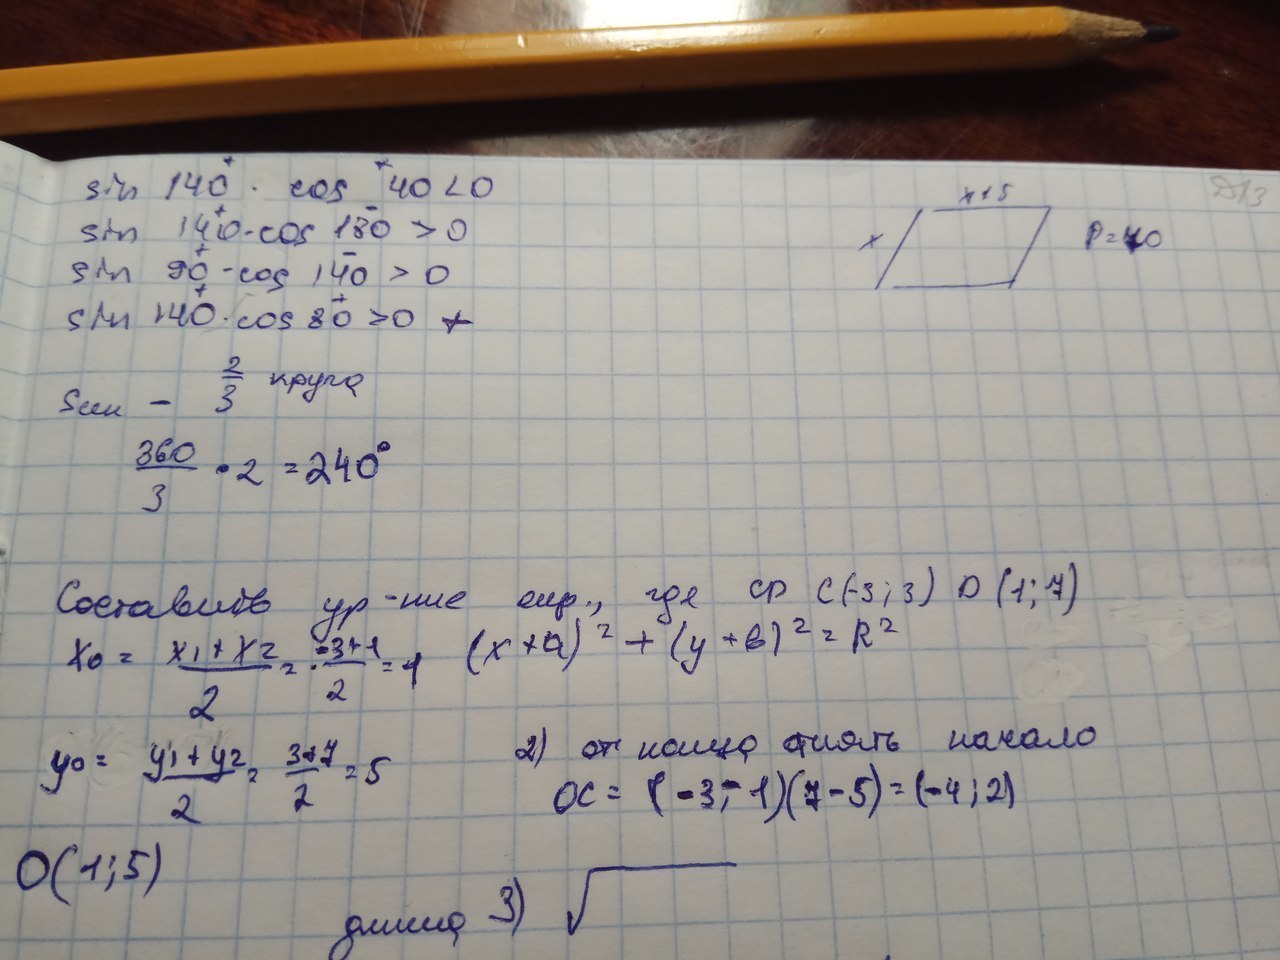 sin 140⁺ · cos 40⁺ < 0
sin 140⁺ · cos 180⁻ > 0
sin 90⁺ · cos 140⁻ > 0
sin 140⁺ · cos 80⁺ > 0 +
x+5
x
P=40
2/3 круга
360/3 · 2 = 240°
Составить ур-ние окр., где CD C(-3;3) D(1;7)
x₀ = (x₁+x₂)/2 = (-3+1)/2 = 1 (x+a)² + (y+b)² = R²
y₀ = (y₁+y₂)/2 = (3+7)/2 = 5
2) от конца отнять начало
OC = (-3;-1)(7-5) = (-4;2)
O(1;5)
длина 3) √